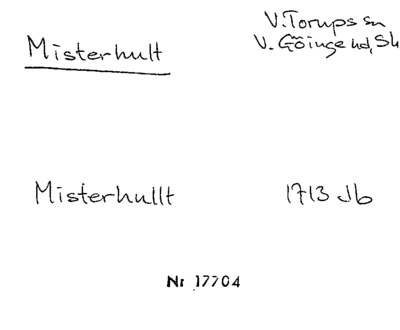 Misterhult
V. Torups sn
V. Göinge hd, Sk
Misterhullt
1713 Jb
Nr 17704